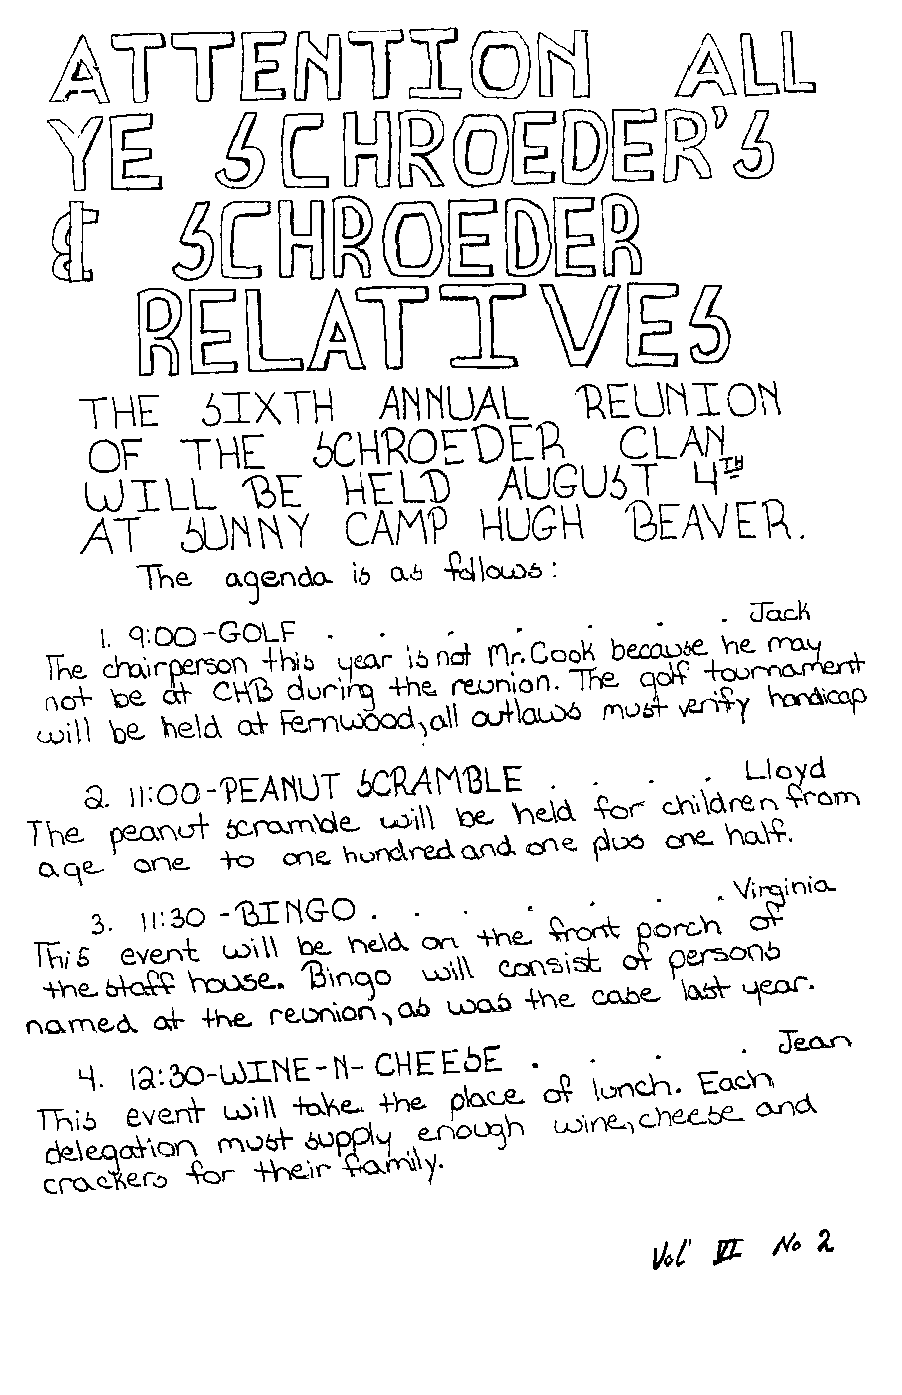 ATTENTION ALL
YE SCHROEDER'S
& SCHROEDER
RELATIVES
THE SIXTH ANNUAL REUNION
OF THE SCHROEDER CLAN
WILL BE HELD AUGUST 4TH
AT SUNNY CAMP HUGH BEAVER.
The agenda is as follows:
1. 9:00-GOLF . . . . . . . Jack
The chairperson this year is not Mr. Cook because he may
not be at CHB during the reunion. The golf tournament
will be held at Fernwood, all outlaws must verify handicap
2. 11:00-PEANUT SCRAMBLE . . . . Lloyd
The peanut scramble will be held for children from
age one to one hundred and one plus one half.
3. 11:30 -BINGO . . . . . . . Virginia
This event will be held on the front porch of
the staff house. Bingo will consist of persons
named at the reunion, as was the case last year.
4. 12:30-WINE-N-CHEESE . . . . Jean
This event will take the place of lunch. Each
delegation must supply enough wine, cheese and
crackers for their family.
Vol VI No 2